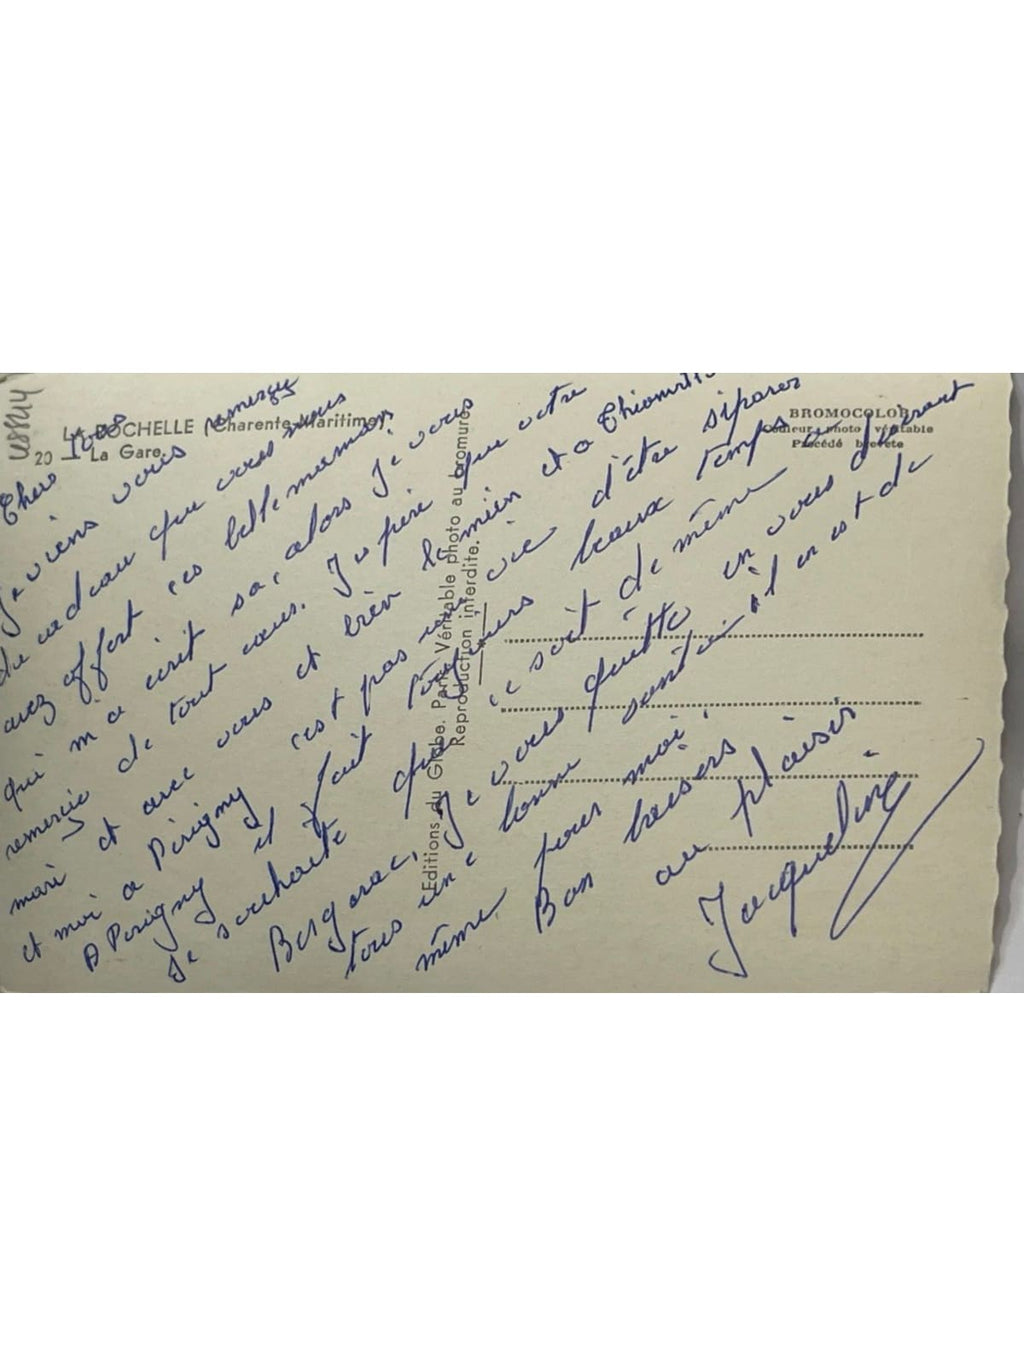 LA ROCHELLE (Charente-Maritime)
20 — La Gare.
BROMOCOLOR
Couleur photo véritable
Procédé breveté
Editions du Globe. Paris Véritable photo au bromure.
Reproduction interdite.
Chers Tous
Je viens vous remerçie
du cadeau que vous nous
avez offert ces belle maman
qui m'a écrit sa, alors Je vous
remercie de tout cœur. J'espère que votre
mari et avec vous et bien le mien et a
et moi a Périgny c'est pas une vie d'être séparer
A Périgny il fait toujours beaux temps
Je souhaite que ce soit de même a
Bergerac, Je vous quitte en vous désirant
tous une bonne santé il en est de
même pour moi.
Bon baisers
au plaisir
Jacqueline